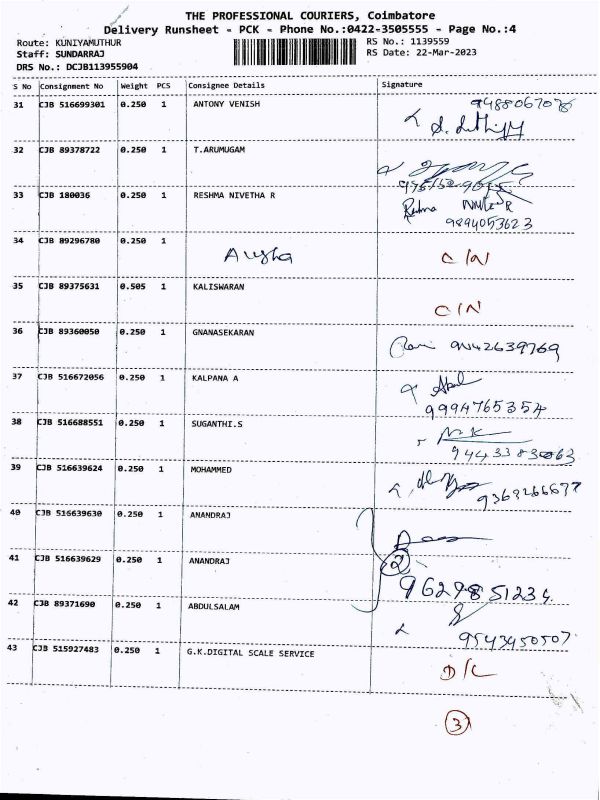 THE PROFESSIONAL COURIERS, Coimbatore
Delivery Runsheet - PCK - Phone No.:0422-3505555 - Page No.:4
Route: KUNIYAMUTHUR
Staff: SUNDARRAJ
DRS No.: DCJB113955904
RS No.: 1139559
RS Date: 22-Mar-2023
S No Consignment No Weight PCS Consignee Details Signature
31 CJB 516699301 0.250 1 ANTONY VENISH 9488067076
32 CJB 89378722 0.250 1 T.ARUMUGAM
33 CJB 180036 0.250 1 RESHMA NIVETHA R Reshma
9894053623
34 CJB 89296780 0.250 1 C/N
35 CJB 89375631 0.505 1 KALISWARAN C/N
36 CJB 89360050 0.250 1 GNANASEKARAN 9442639769
37 CJB 516672056 0.250 1 KALPANA A
9994765354
38 CJB 516688551 0.250 1 SUGANTHI.S
9443383063
39 CJB 516639624 0.250 1 MOHAMMED
40 CJB 516639630 0.250 1 ANANDRAJ
41 CJB 516639629 0.250 1 ANANDRAJ 2
9629851234
42 CJB 89371690 0.250 1 ABDULSALAM 9543450507
43 CJB 515927483 0.250 1 G.K.DIGITAL SCALE SERVICE D/L
3